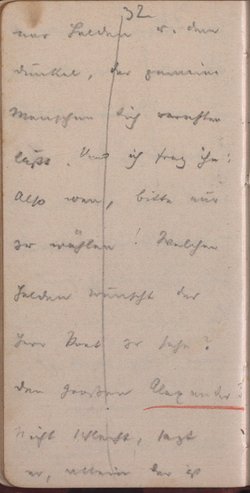 32
nur Helden u. dem
dunkel, der gemeine
Menschen sich verachten
läßt. Und ich frag ihn:
Also wen, bitte nur
zu wählen! Welchen
Helden wünscht der
Herr Poet zu sehn?
den großen Alexander?
Nicht schlecht, sagt
er, allein der ist